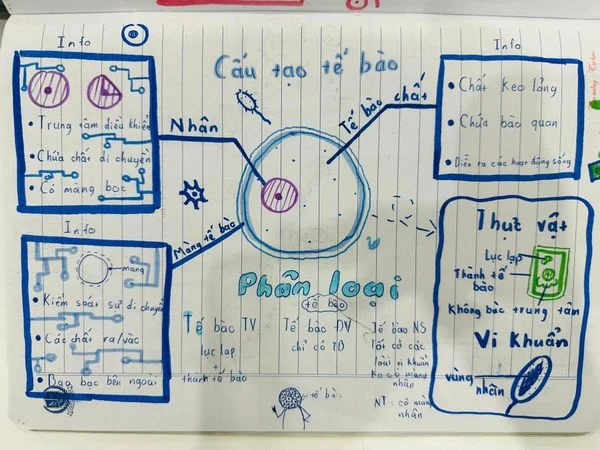 Info
Cấu tạo tế bào
Info
• Trung tâm điều khiển
• Chứa chất di chuyền
• Có màng bọc
Nhân
Tế bào chất
• Chất keo lỏng
• Chứa bào quan
• Diễn ra các hoạt động sống
Info
màng
• Kiểm soát sự di chuyển
• Các chất ra/vào
• Bao bọc bên ngoài
Màng tế bào
Phân loại
tế bào
Tế bào TV
lục lạp
+
thành tế bào
Tế bào ĐV
chỉ có TB
Tế bào NS
tất cả các
loài vi khuẩn
ko có màng
nhân
NT: có màng
nhân
tế bào
Thực vật
Lục lạp
Thành tế
bào
Không bào trung tâm
Vi khuẩn
vùng
nhân